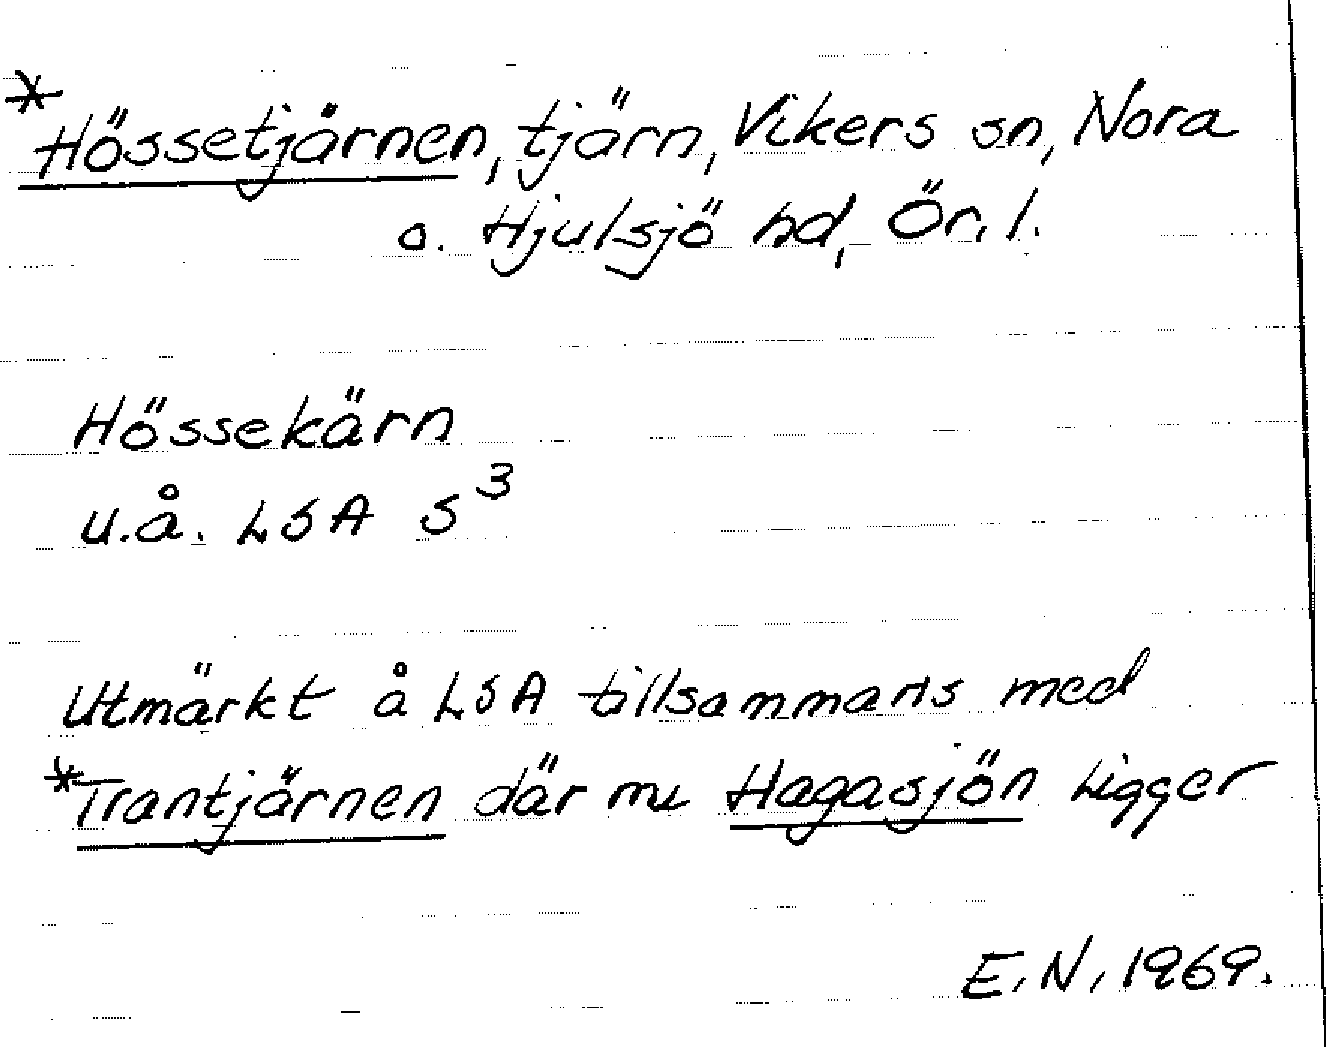 *Hössetjärnen, tjärn, Vikers sn, Nora
o. Hjulsjö hd, Ör. l.
Hössekärn
u.å. LSA S³
Utmärkt å LSA tillsammans med
*Trantjärnen där nu Hagasjön ligger
E.N. 1969.